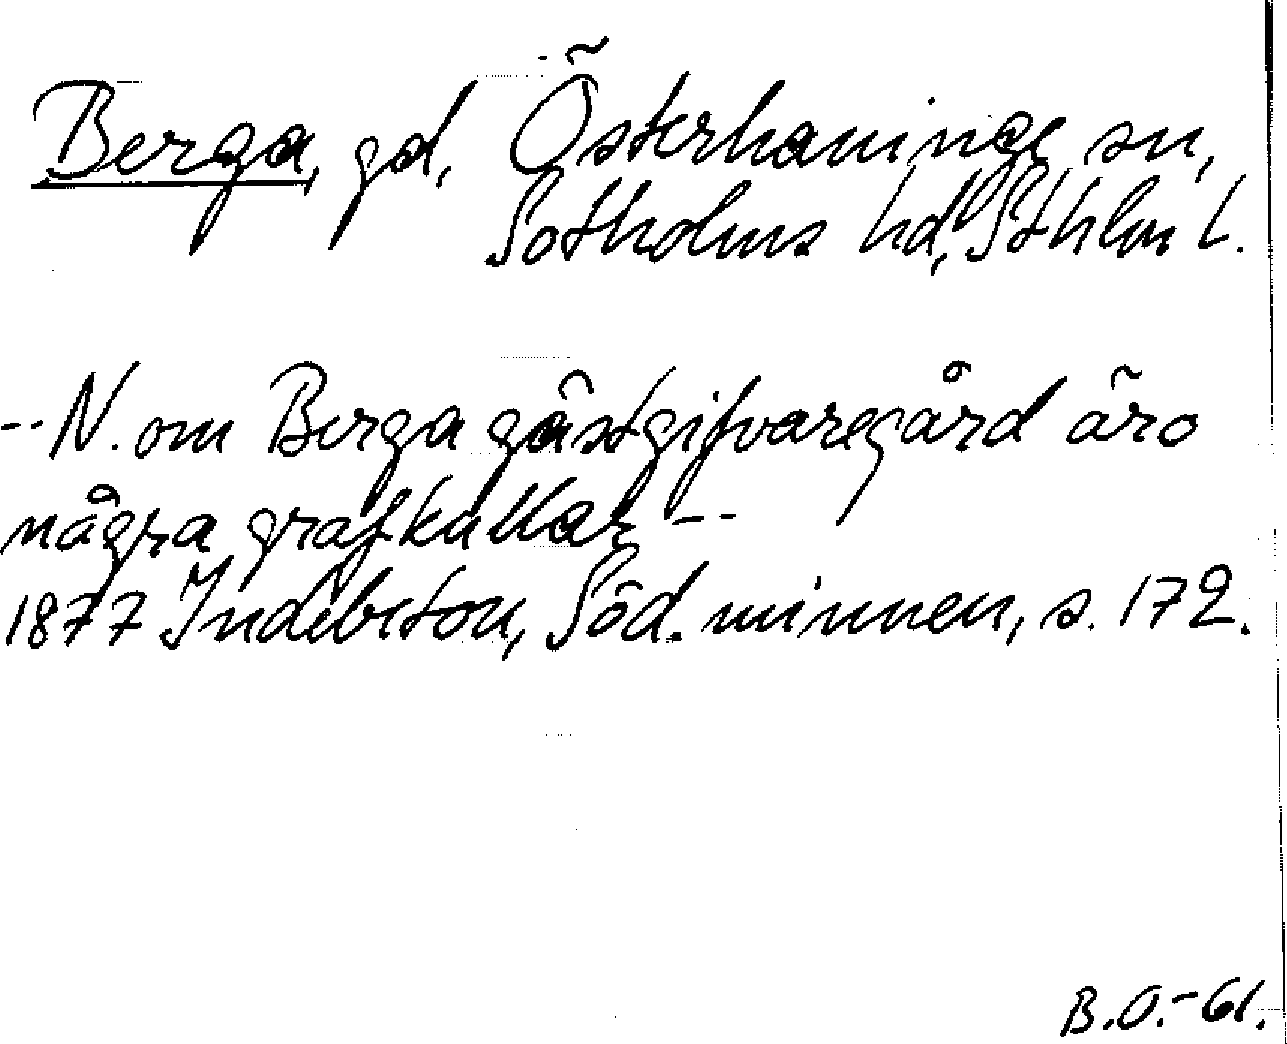 Berga, gd, Österhaninge sn,
Sotholms hd, Sthlm l.
-- N. om Berga gästgifvaregård äro
några grafkullar --
1877 Indebetou, Söd. minnen, s. 172.
B.O.-61.